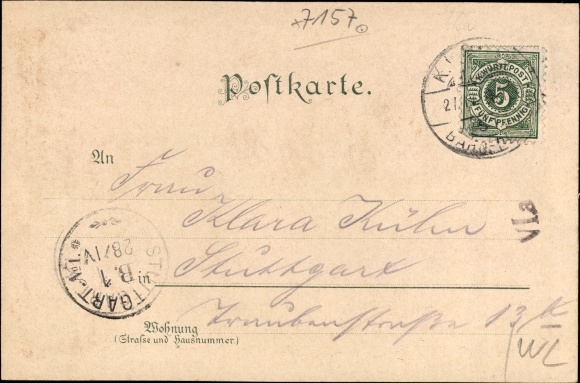 *7157
Postkarte.
K.WÜRTT.POST
5
FÜNF PFENNIG
An
Frau
Klara Kühn
in Stuttgart
Traubenstraße 13
Wohnung
(Strasse und Hausnummer.)
STUTTGART No.1.
28/IV
B.1
VIa
WL